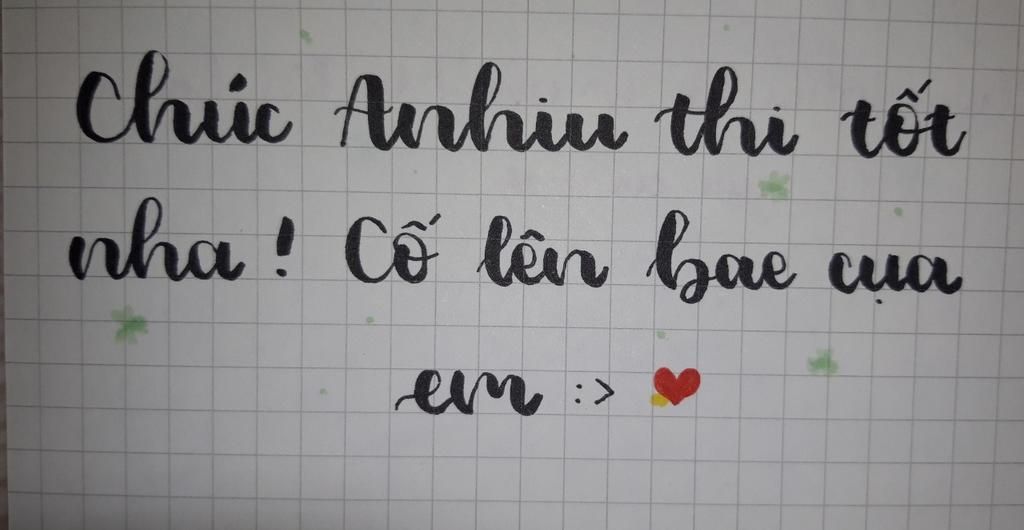 Chúc Anhiu thi tốt
nha! Cố lên bae cụa
em :> ❤